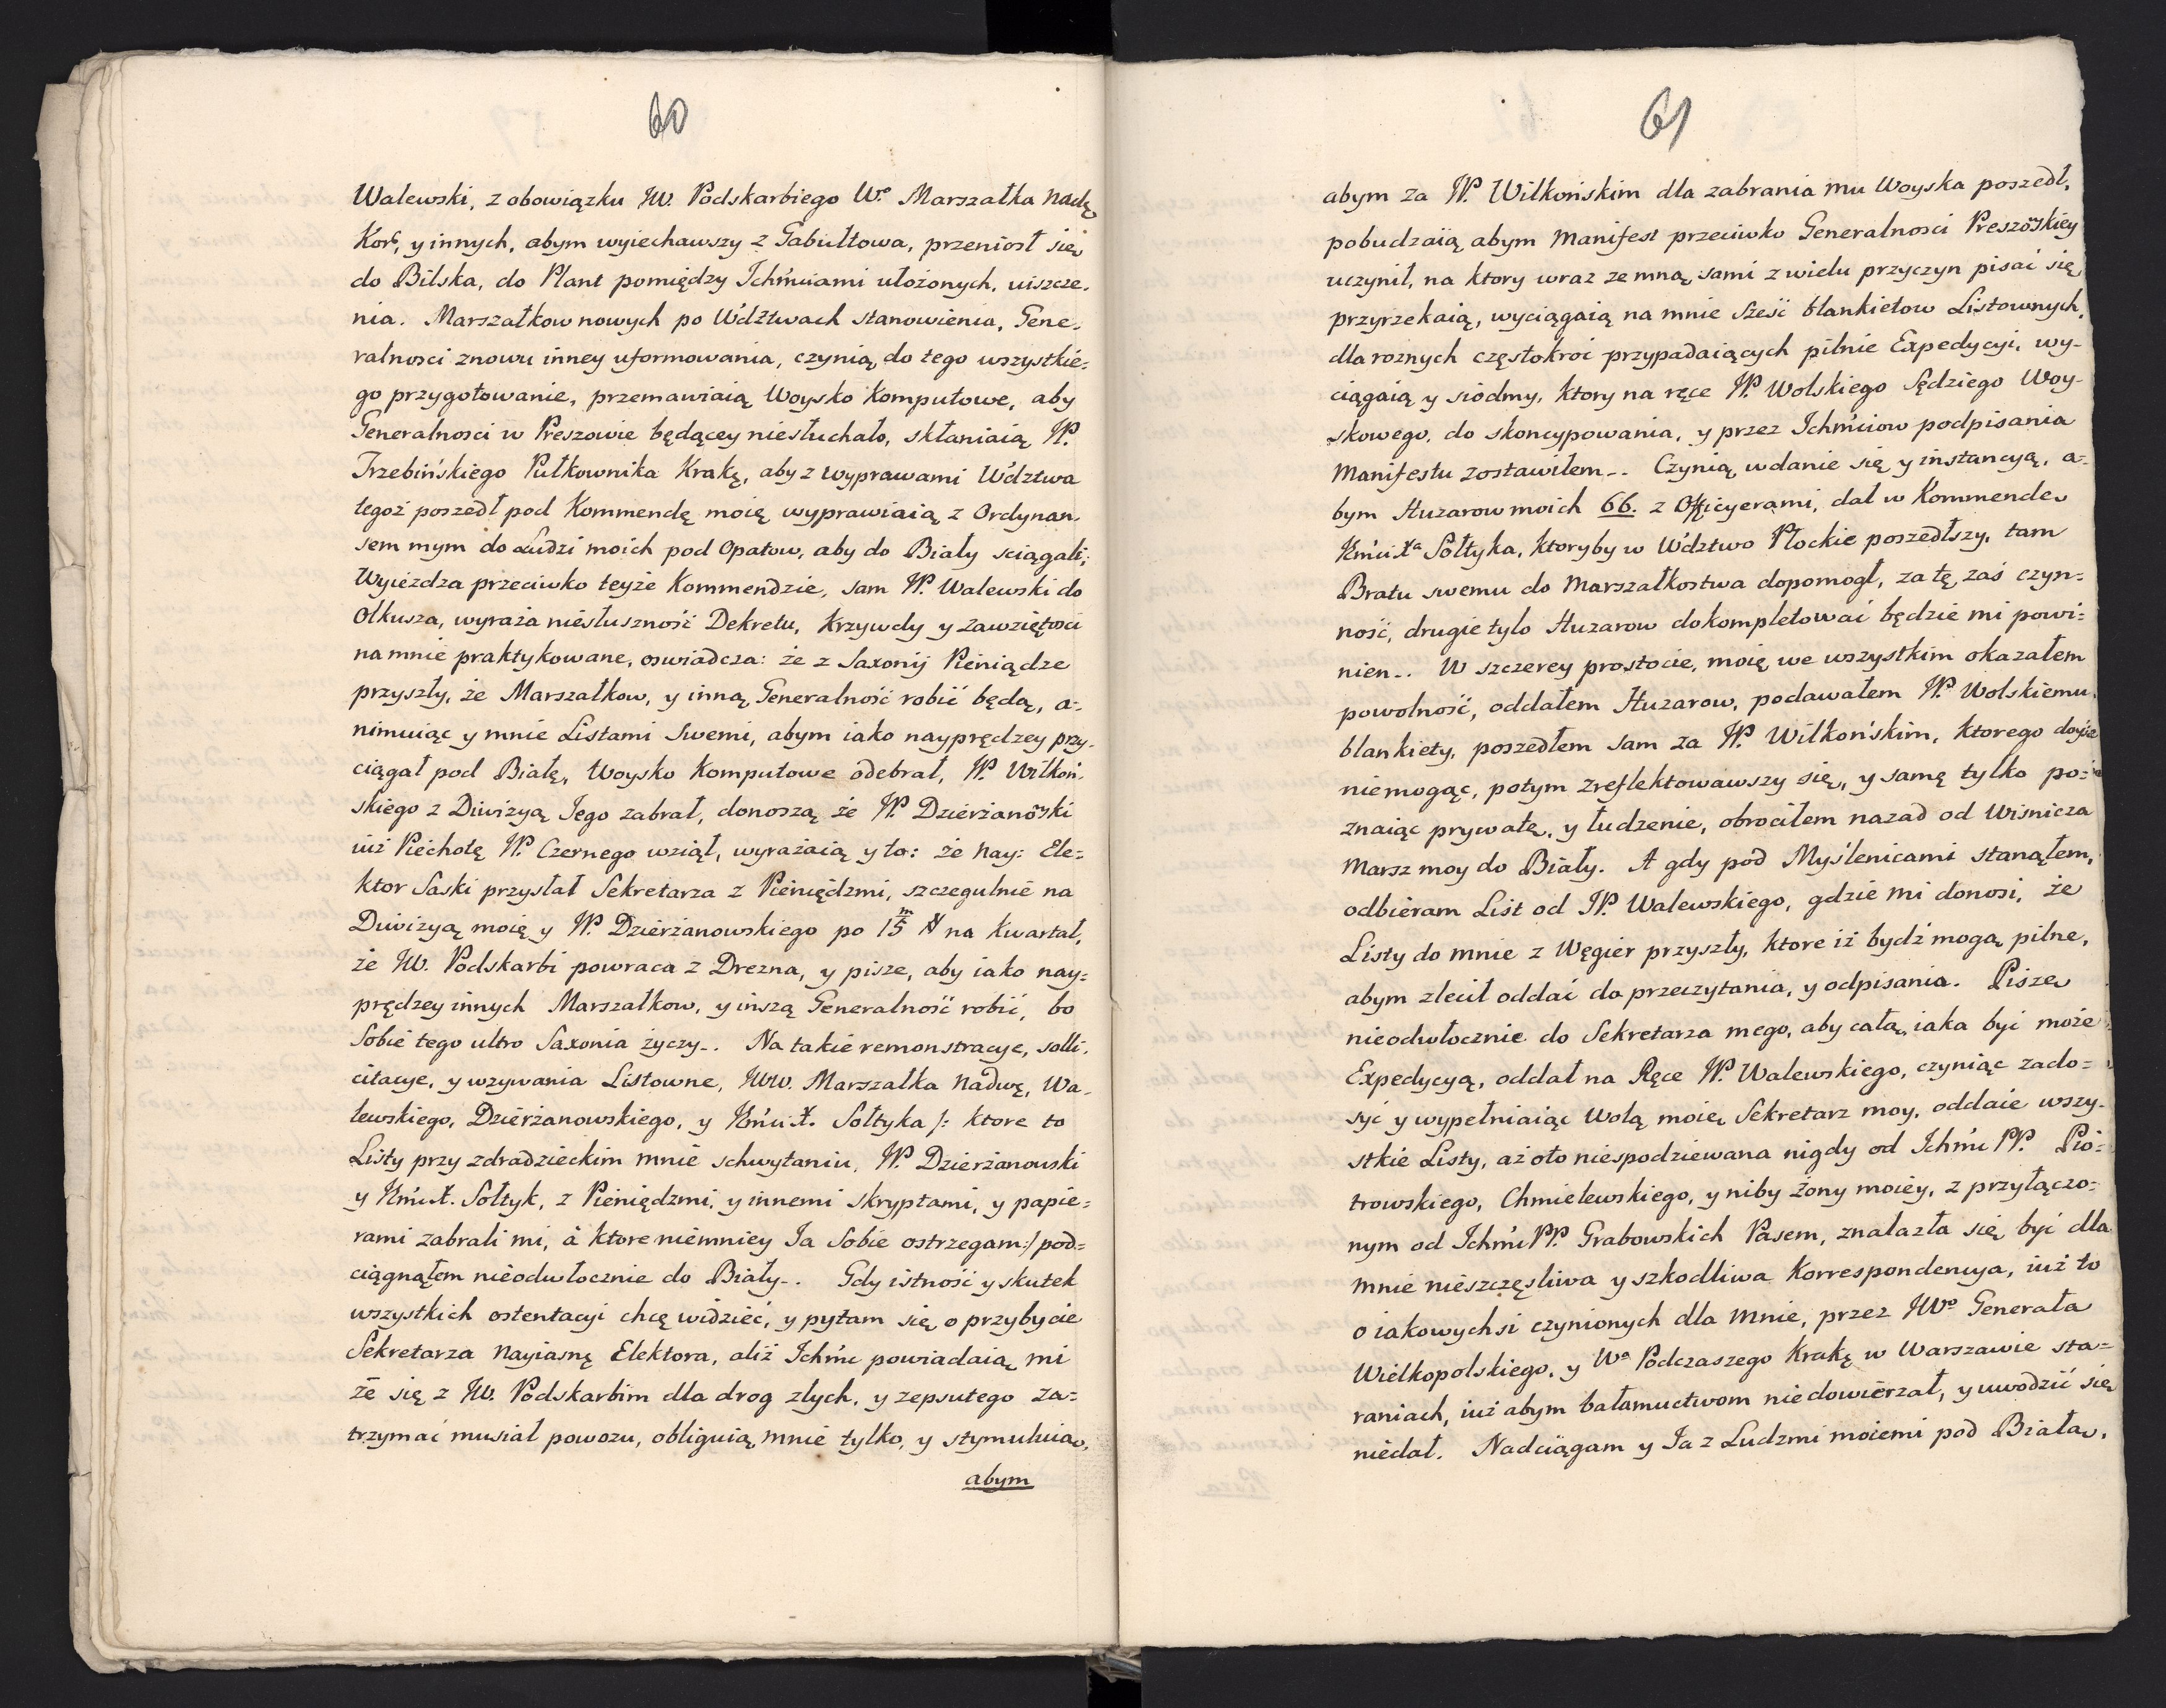 60
Walewski, z obowiązku JW. Podskarbiego Wo Marszałka Nadw
Kor, y innych, abym wyiechawszy z Gabułtowa, przeniosł się
do Bilska, do Plant pomiędzy Ichmciami ułożonych, uiszcze-
nia. Marszałkow nowych po Wdztwach stanowienia, Gene-
ralnosci znowu inney uformowania, czynią do tego wszystkie-
go przygotowanie, przemawiaią Woysko Komputowe, aby
Generalnosci w Preszowie będącey niesłuchało, skłaniaią JP.
Trzebińskiego Pułkownika Krakę, aby z wyprawami Wdztwa
tegoż poszedł pod Kommendę moię wyprawiaią z Ordynan-
sem mym do Ludzi moich pod Opatow, aby do Biały sciągali;
Wyieżdza przeciwko teyże Kommendzie, sam JP. Walewski do
Olkusza, wyraża niesłuszność Dekretu, Krzywdy y zawziętosci
na mnie praktykowane, oswiadcza: że z Saxonij Pieniądze
przyszły, że Marszałkow, y inną Generalność robić będą, a-
nimuiąc y mnie Listami Swemi, abym iako nayprędzey przy-
ciągał pod Białę, Woysko Komputowe odebrał, JP. Wilkoń-
skiego z Diwizyą Jego zabrał, donoszą że JP. Dzierżanowski
iuż Piechotę JP. Czernego wziął, wyrażaią y to: że Nay: Ele-
ktor Saski przysłał Sekretarza z Pieniędzmi, szczegulnie na
Diwizyą moię y JP. Dzierżanowskiego po 15 m # na Kwartał,
że JW. Podskarbi powraca z Drezna, y pisze, aby iako nay-
prędzey innych Marszałkow, y inszą Generalność robić, bo
Sobie tego ultro Saxonia życzy_. Na takie remonstracye, solli-
citacye, y wzywania Listowne, JWW. Marszałka Nadwę, Wa-
lewskiego, Dzierżanowskiego, y Jmci X. Sołtyka /: ktore to
Listy przy zdradzieckim mnie schwytaniu, JP. Dzierżanowski
y Jmci X. Sołtyk, z Pieniędzmi, y innemi skryptami, y papie-
rami zabrali mi, á ktore niemniey Ja Sobie ostrzegam:/ pod-
ciągnąłem nieodwłocznie do Biały_. Gdy istność y skutek
wszystkich ostentacyi chcę widzieć, y pytam się o przybycie
Sekretarza Nayiasnę Elektora, aliż Ichmć powiadaią mi
że się z JW. Podskarbim dla drog zlych, y zepsutego za-
trzymać musiał powozu, obliguią mnie tylko, y stymuluią,
abym
61
abym za JP. Wilkońskim dla zabrania mu Woyska poszedł,
pobudzaią abym Manifest przeciwko Generalnosci Preszowskiey
uczynił, na ktory wraz ze mną sami z wielu przyczyn pisać się
przyrzekaią, wyciągaią na mnie sześć blankietow Listownych,
dla roznych częstokroć przypadaiących pilnie Expedycyi, wy-
ciągaią y siodmy, ktory na ręce JP. Wolskiego Sędziego Woy-
skowego, do skoncypowania, y przez Ichmciow podpisania
Manifestu zostawiłem_. Czynią wdanie się y instancyą, a-
bym Huzarow moich 66. z Officyerami, dał w Kommendę
Jmci Xa Sołtyka, ktoryby w Wdztwo Płockie poszedłszy, tam
Bratu swemu do Marszałkostwa dopomogł, za tę zaś czyn-
ność, drugie tylo Huzarow dokompletować będzie mi powi-
nien_. W szczerey prostocie, moię we wszystkim okazałem
powolność, oddałem Huzarow, podawałem JP. Wolskiemu
blankiety, poszedłem sam za JP. Wilkońskim, ktorego doyść
niemogąc, potym zreflektowawszy się, y samę tylko po-
znaiąc prywatę, y łudzenie, obrociłem nazad od Wisnicza
Marsz moy do Biały. A gdy pod Myślenicami stanąłem,
odbieram List od JP. Walewskiego, gdzie mi donosi, że
Listy do mnie z Węgier przyszły, ktore iż bydź mogą pilne,
abym zlecił oddać do przeczytania, y odpisania. Piszę
nieodwłocznie do Sekretarza mego, aby całą iaka być może
Expedycyą, oddał na Ręce JP. Walewskiego, czyniąc zado-
syć y wypełniaiąc wolą moię Sekretarz moy, oddaie wszy-
stkie Listy, aż oto niespodziewana nigdy od Ichmć PP. Pio-
trowskiego, Chmielewskiego, y niby żony moiey, z przyłączo-
nym od Ichmć PP. Grabowskich Pasem, znalazła się być dla
mnie nieszczęsliwa y szkodliwa Korrespondencya, iuż to
o iakowychsi czynionych dla mnie, przez JWo Generała
Wielkopolskiego, y Wa Podczaszego Krakę w Warszawie sta-
raniach, iuż abym bałamuctwom niedowierzał, y uwodzić się
niedał. Nadciągam y Ja z Ludzmi moiemi pod Białą,